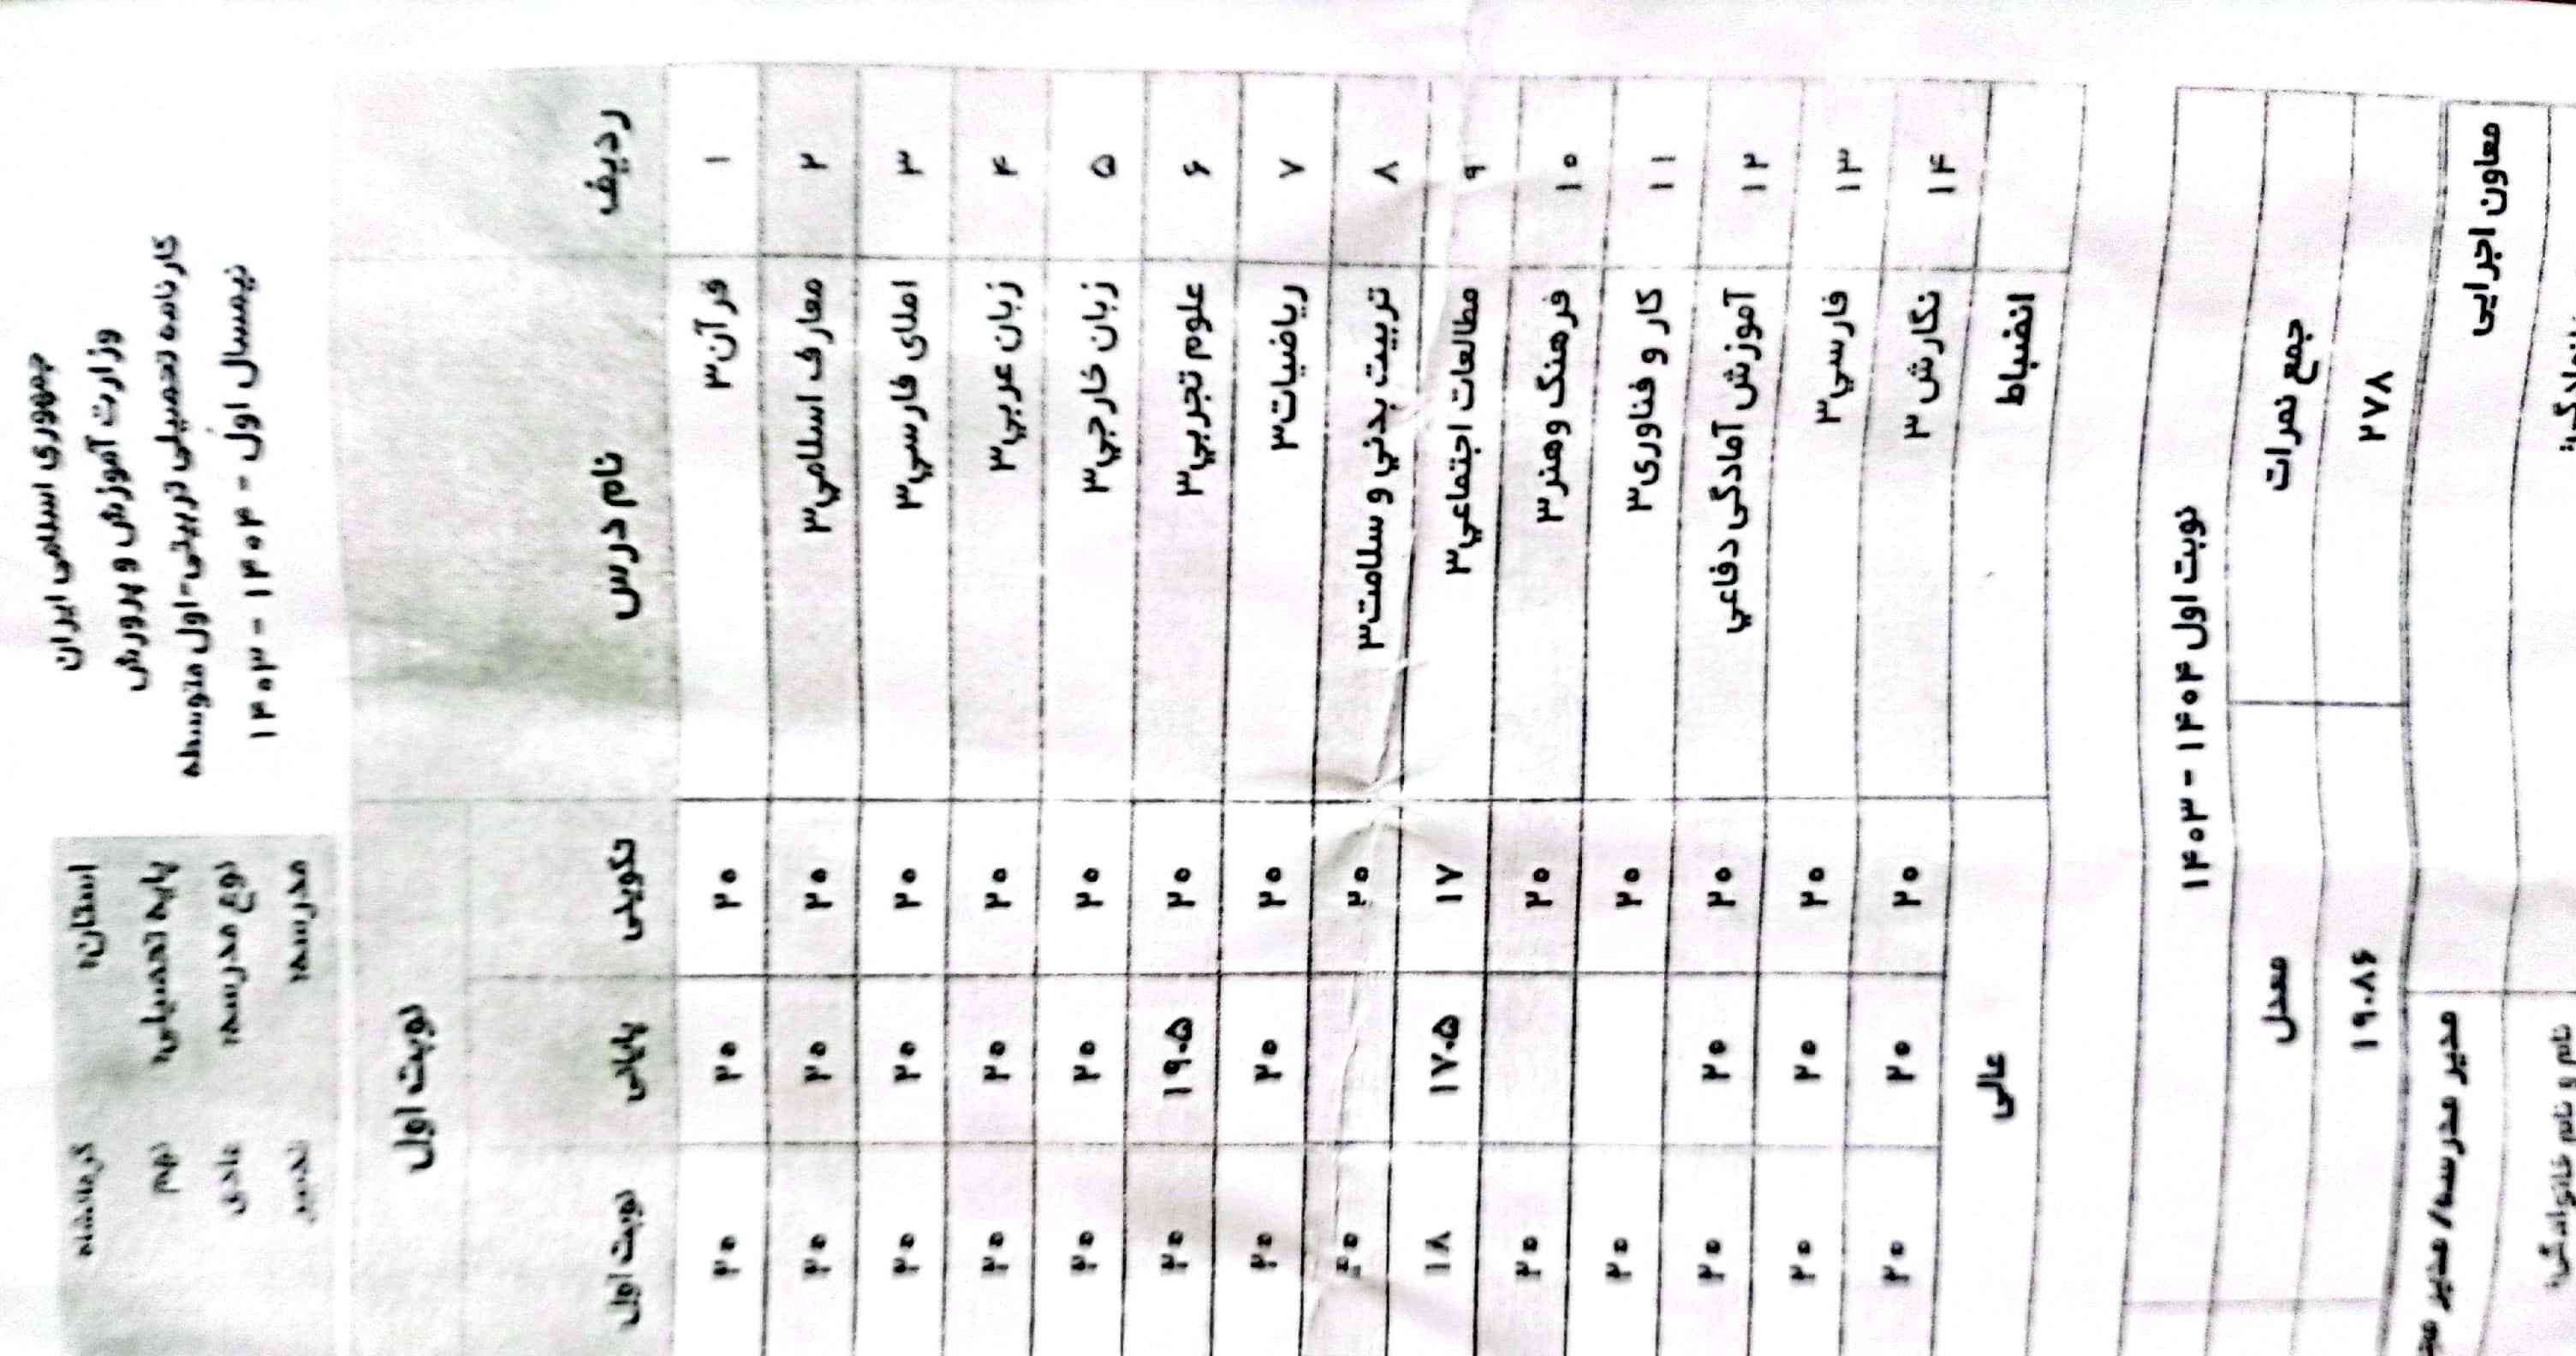 جمهوری اسلامی ایران
وزارت آموزش و پرورش
کارنامه تحصیلی تربیتی-اول متوسطه
نیمسال اول - ۱۴۰۴ - ۱۴۰۳
استان: کرمانشاه
پایه تحصیلی: نهم
نوع مدرسه: عادی
مدرسه:
نوبت اول
ردیف نام درس تکوینی پایانی نوبت اول
۱ قرآن۳ ۲۰ ۲۰ ۲۰
۲ معارف اسلامي۳ ۲۰ ۲۰ ۲۰
۳ املای فارسي۳ ۲۰ ۲۰ ۲۰
۴ زبان عربي۳ ۲۰ ۲۰ ۲۰
۵ زبان خارجي۳ ۲۰ ۲۰ ۲۰
۶ علوم تجربي۳ ۲۰ ۱۹.۵ ۲۰
۷ ریاضیات۳ ۲۰ ۲۰ ۲۰
۸ تربیت بدني و سلامت۳ ۲۰ ۲۰
۹ مطالعات اجتماعي۳ ۱۷ ۱۷.۵ ۱۸
۱۰ فرهنگ وهنر۳ ۲۰ ۲۰
۱۱ کار و فناوری۳ ۲۰ ۲۰
۱۲ آموزش آمادگی دفاعي ۲۰ ۲۰ ۲۰
۱۳ فارسي۳ ۲۰ ۲۰ ۲۰
۱۴ نگارش ۳ ۲۰ ۲۰ ۲۰
انضباط عالی
نوبت اول ۱۴۰۴ - ۱۴۰۳
جمع نمرات معدل
۲۷۸ ۱۹.۸۶
معاون اجرایی مدیر مدرسه/ مدیر
نام و نام خانوادگی: